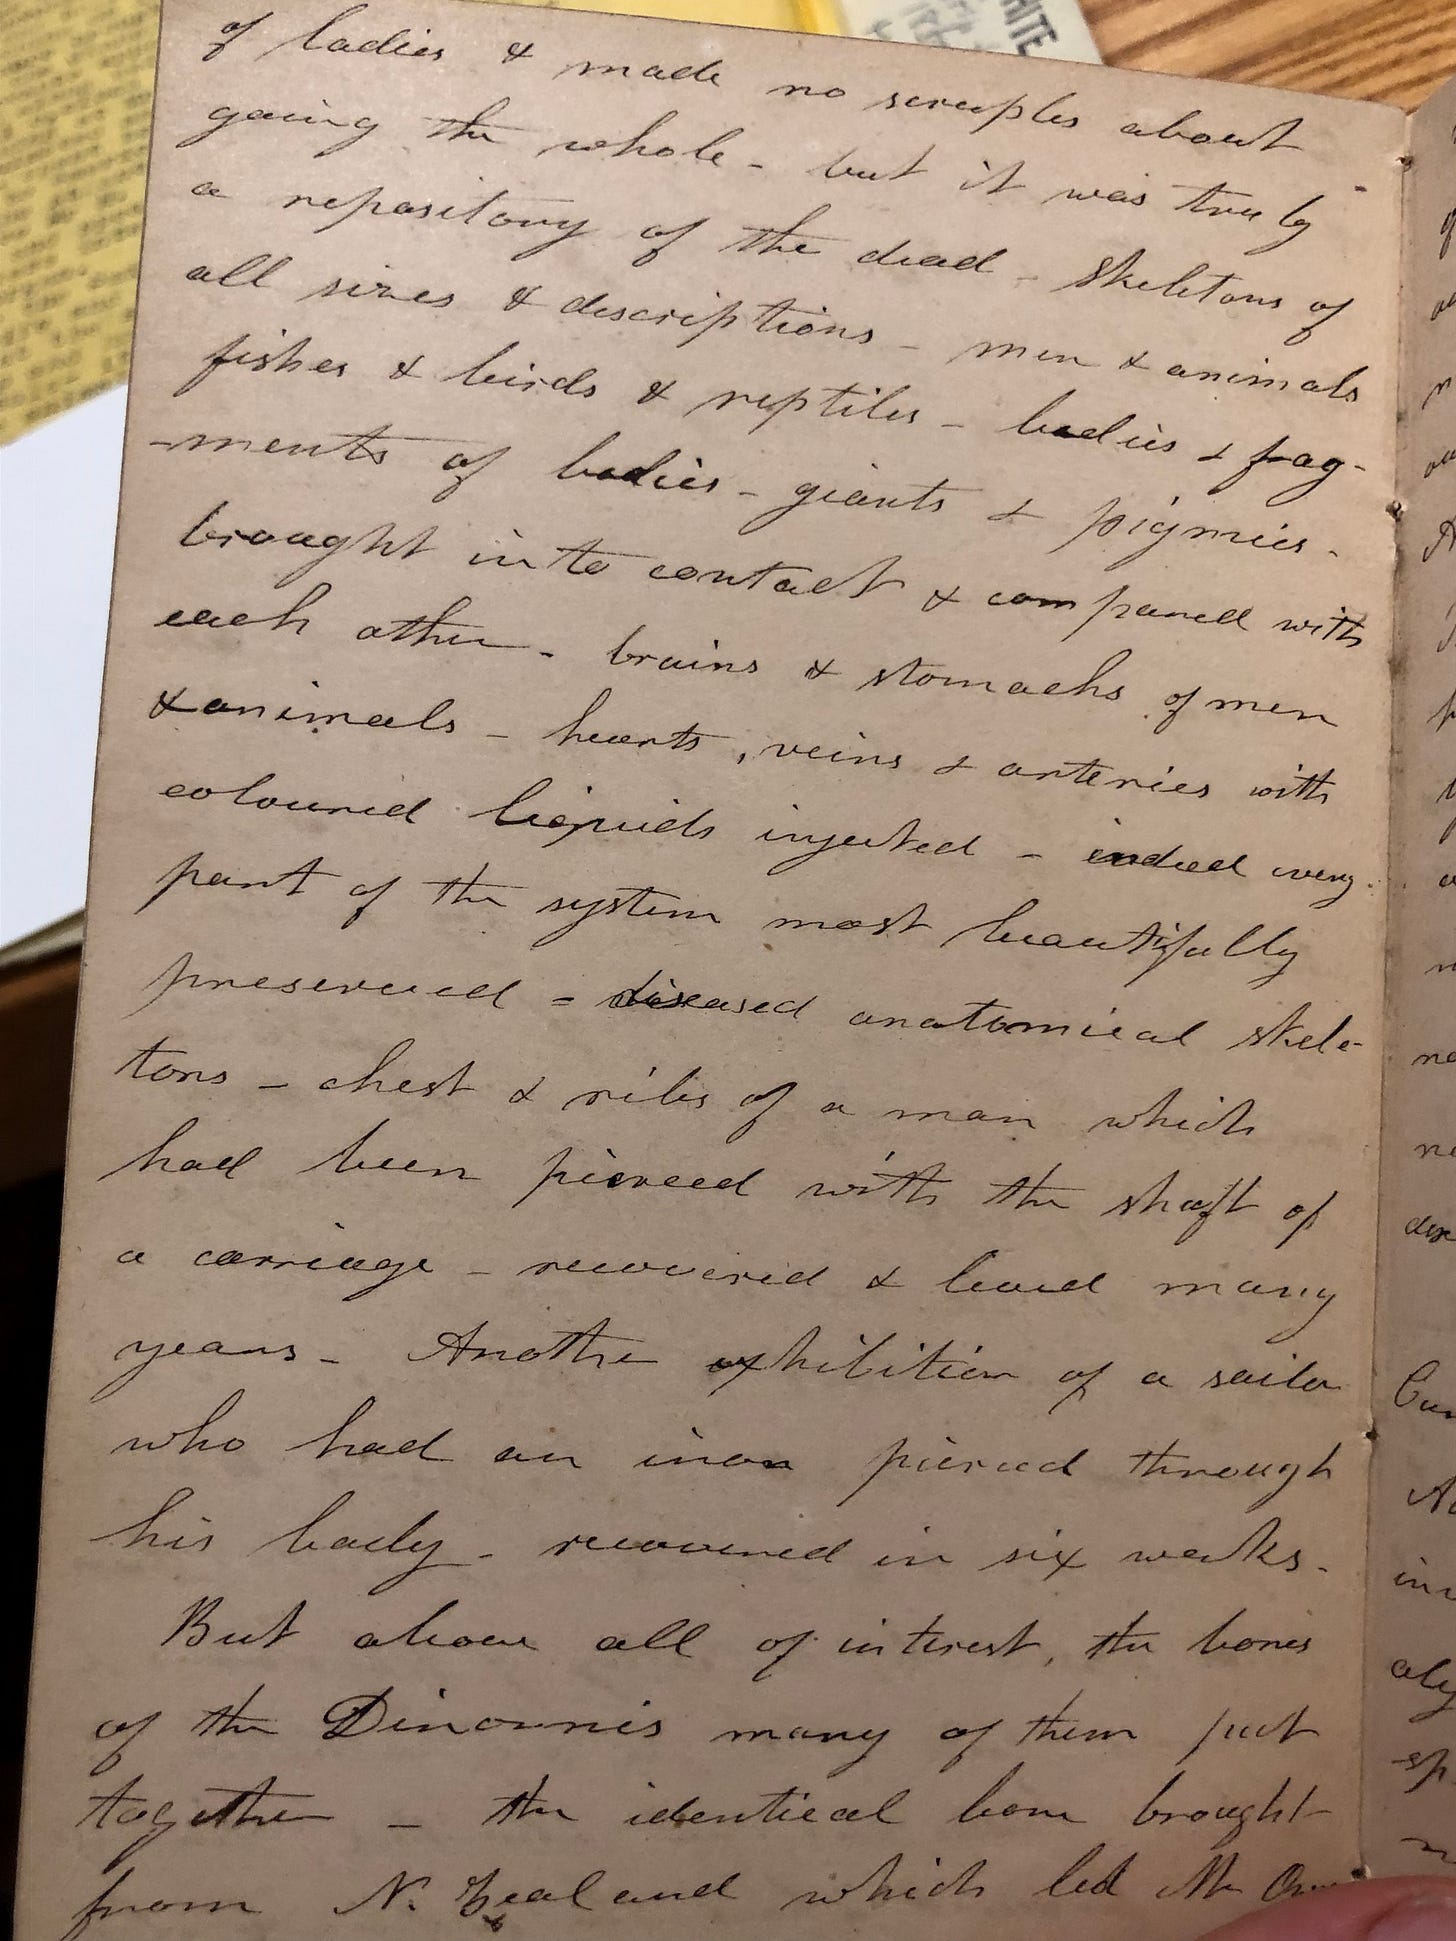 of ladies & made no scruples about
going the whole - but it was truly
a repository of the dead - skeletons of
all sizes & descriptions - men & animals
fishes & birds & reptiles - bodies & frag-
-ments of bodies - giants & pigmies -
brought into contact & compared with
each other - brains & stomachs of men
& animals - hearts, veins & arteries with
coloured liquids injected - indeed every
part of the system most beautifully
preserved = diseased anatomical skele-
tons - chest & ribs of a man which
had been pierced with the shaft of
a carriage - recovered & lived many
years - Another exhibition of a sailor
who had an iron pierced through
his body - recovered in six weeks -
But above all of interest, the bones
of the Dinornis many of them put
together - the identical bone brought
from N. Zealand which led Mr